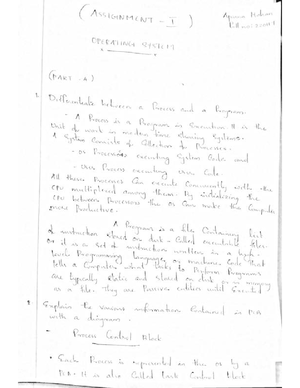 ( ASSIGNMENT - I )
OPERATING SYSTEM
(PART - A)
1. Differentiate between a Process and a Program
- A Process is a Program in Execution. It is the
Unit of work in modern Time sharing Systems.
A System Consists of Collection of Processes.
- OS Processes executing System Code and
- User Process executing User Code.
All these Processes Can execute Concurrently with the
CPU multiplexed among them. By switching the
CPU between Processes the OS Can make the Computer
more Productive.
A Program is a file Containing list
of instruction stored on disk - Called executable files.
Or it is a set of instruction written in a high
level Programming language or machine Code that
tells a Computer what tasks to Perform. Programs
are typically static and stored on disk or in memory
as a file. They are Passive entities until Executed
2. Explain the various information Contained in PCB
with a diagram.
Process Control Block
• Each Process is represented in the OS by a
PCB. It is also Called task Control block